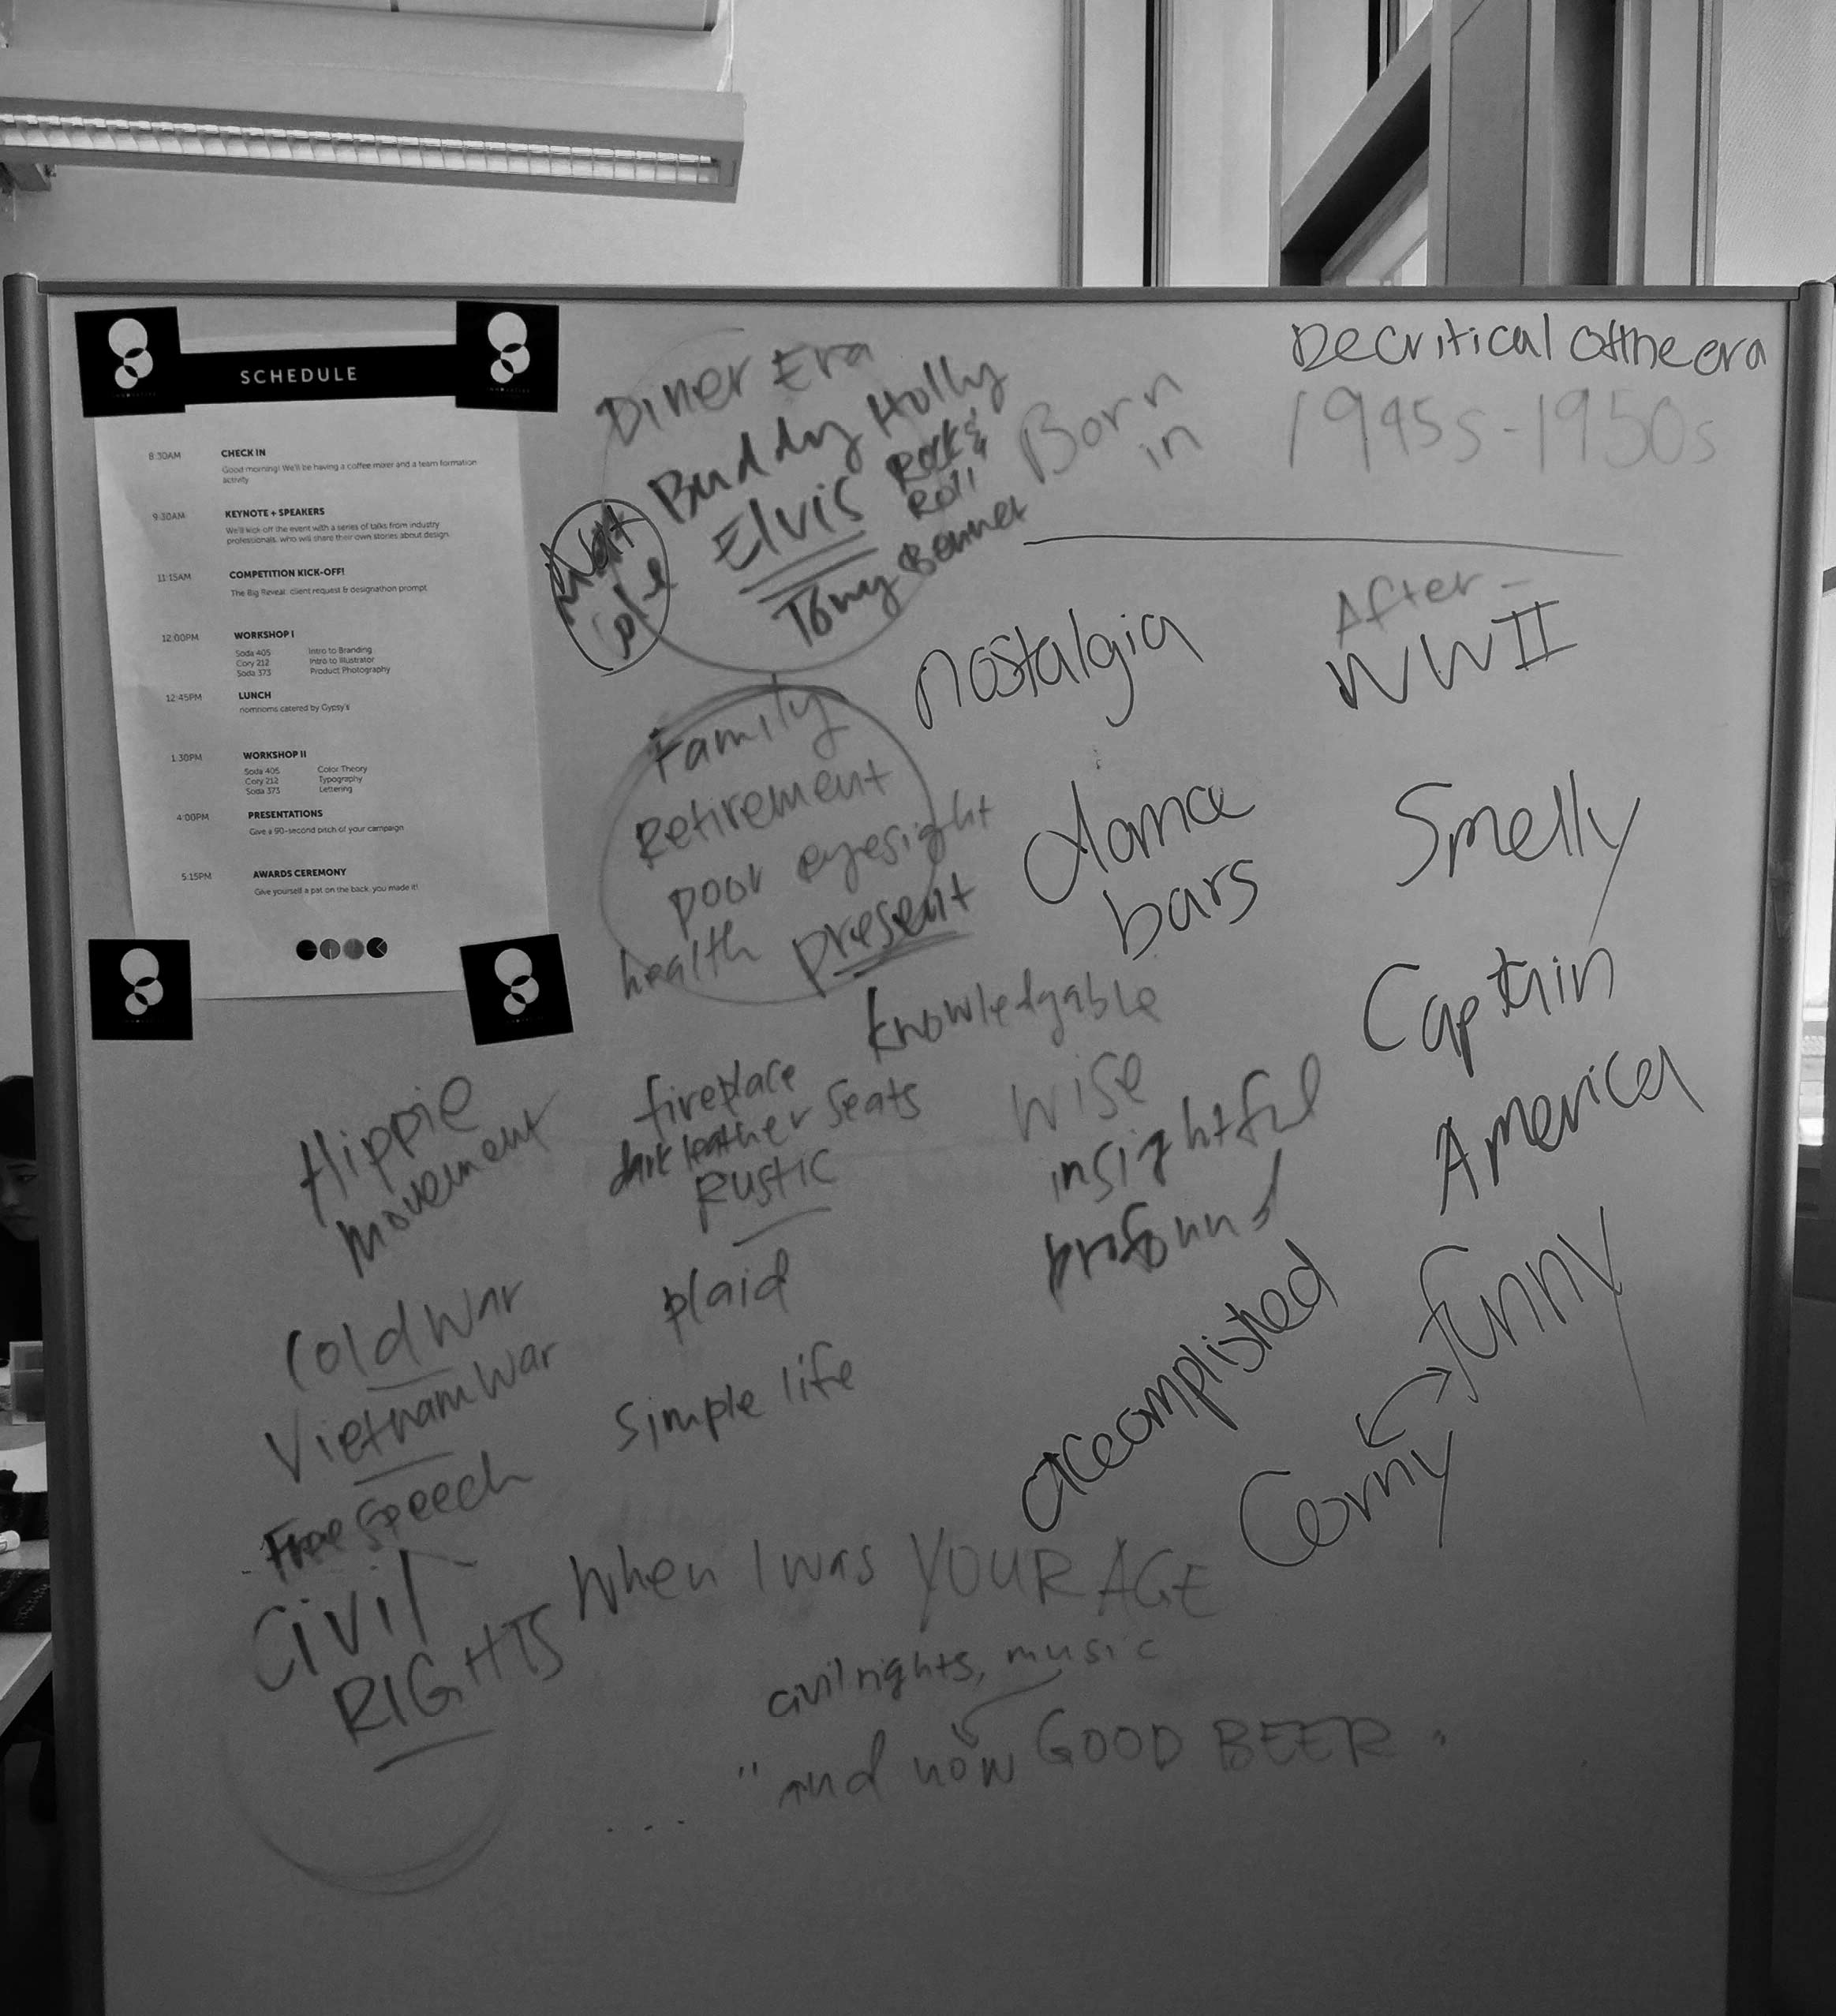 SCHEDULE
8:30AM CHECK IN
Good morning! We'll be having a coffee mixer and a team formation
activity
9:30AM KEYNOTE + SPEAKERS
We'll kick off the event with a series of talks from industry
professionals, who will share their own stories about design.
11:15AM COMPETITION KICK-OFF!
The Big Reveal: client request & designathon prompt
12:00PM WORKSHOP I
Soda 405 Intro to Branding
Cory 212 Intro to Illustrator
Soda 373 Product Photography
12:45PM LUNCH
nomnoms catered by Gypsy's
1:30PM WORKSHOP II
Soda 405 Color Theory
Cory 212 Typography
Soda 373 Lettering
4:00PM PRESENTATIONS
Give a 90-second pitch of your campaign
5:15PM AWARDS CEREMONY
Give yourself a pat on the back, you made it!
Diner Era
Buddy Holly
Elvis Rock &
Roll
Tony Bennet
Nat
Cole
Born
in
Be critical of the era
1945s-1950s
After -
WWII
nostalgia
Family
Retirement
poor eyesight
health present
dance
bars
Smelly
Captain
America
knowledgable
wise
insightful
profound
accomplished
funny
Corny
fireplace
dark leather seats
Rustic
plaid
simple life
Hippie
movement
Cold War
Vietnam War
Free Speech
Civil
RIGHTS
When I was YOUR AGE
civil rights, music
... "and now GOOD BEER."